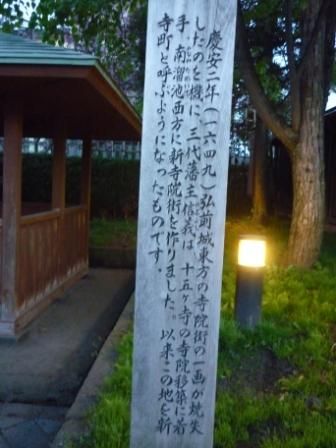 慶安二年(一六四九)弘前城東方の寺院街の一画が焼失
したのを機に、三代藩主信義は、十五ヶ寺の寺院移築に着
手、南溜池西方に新寺院街を作りました。以来この地を新
寺町と呼ぶようになったものです。